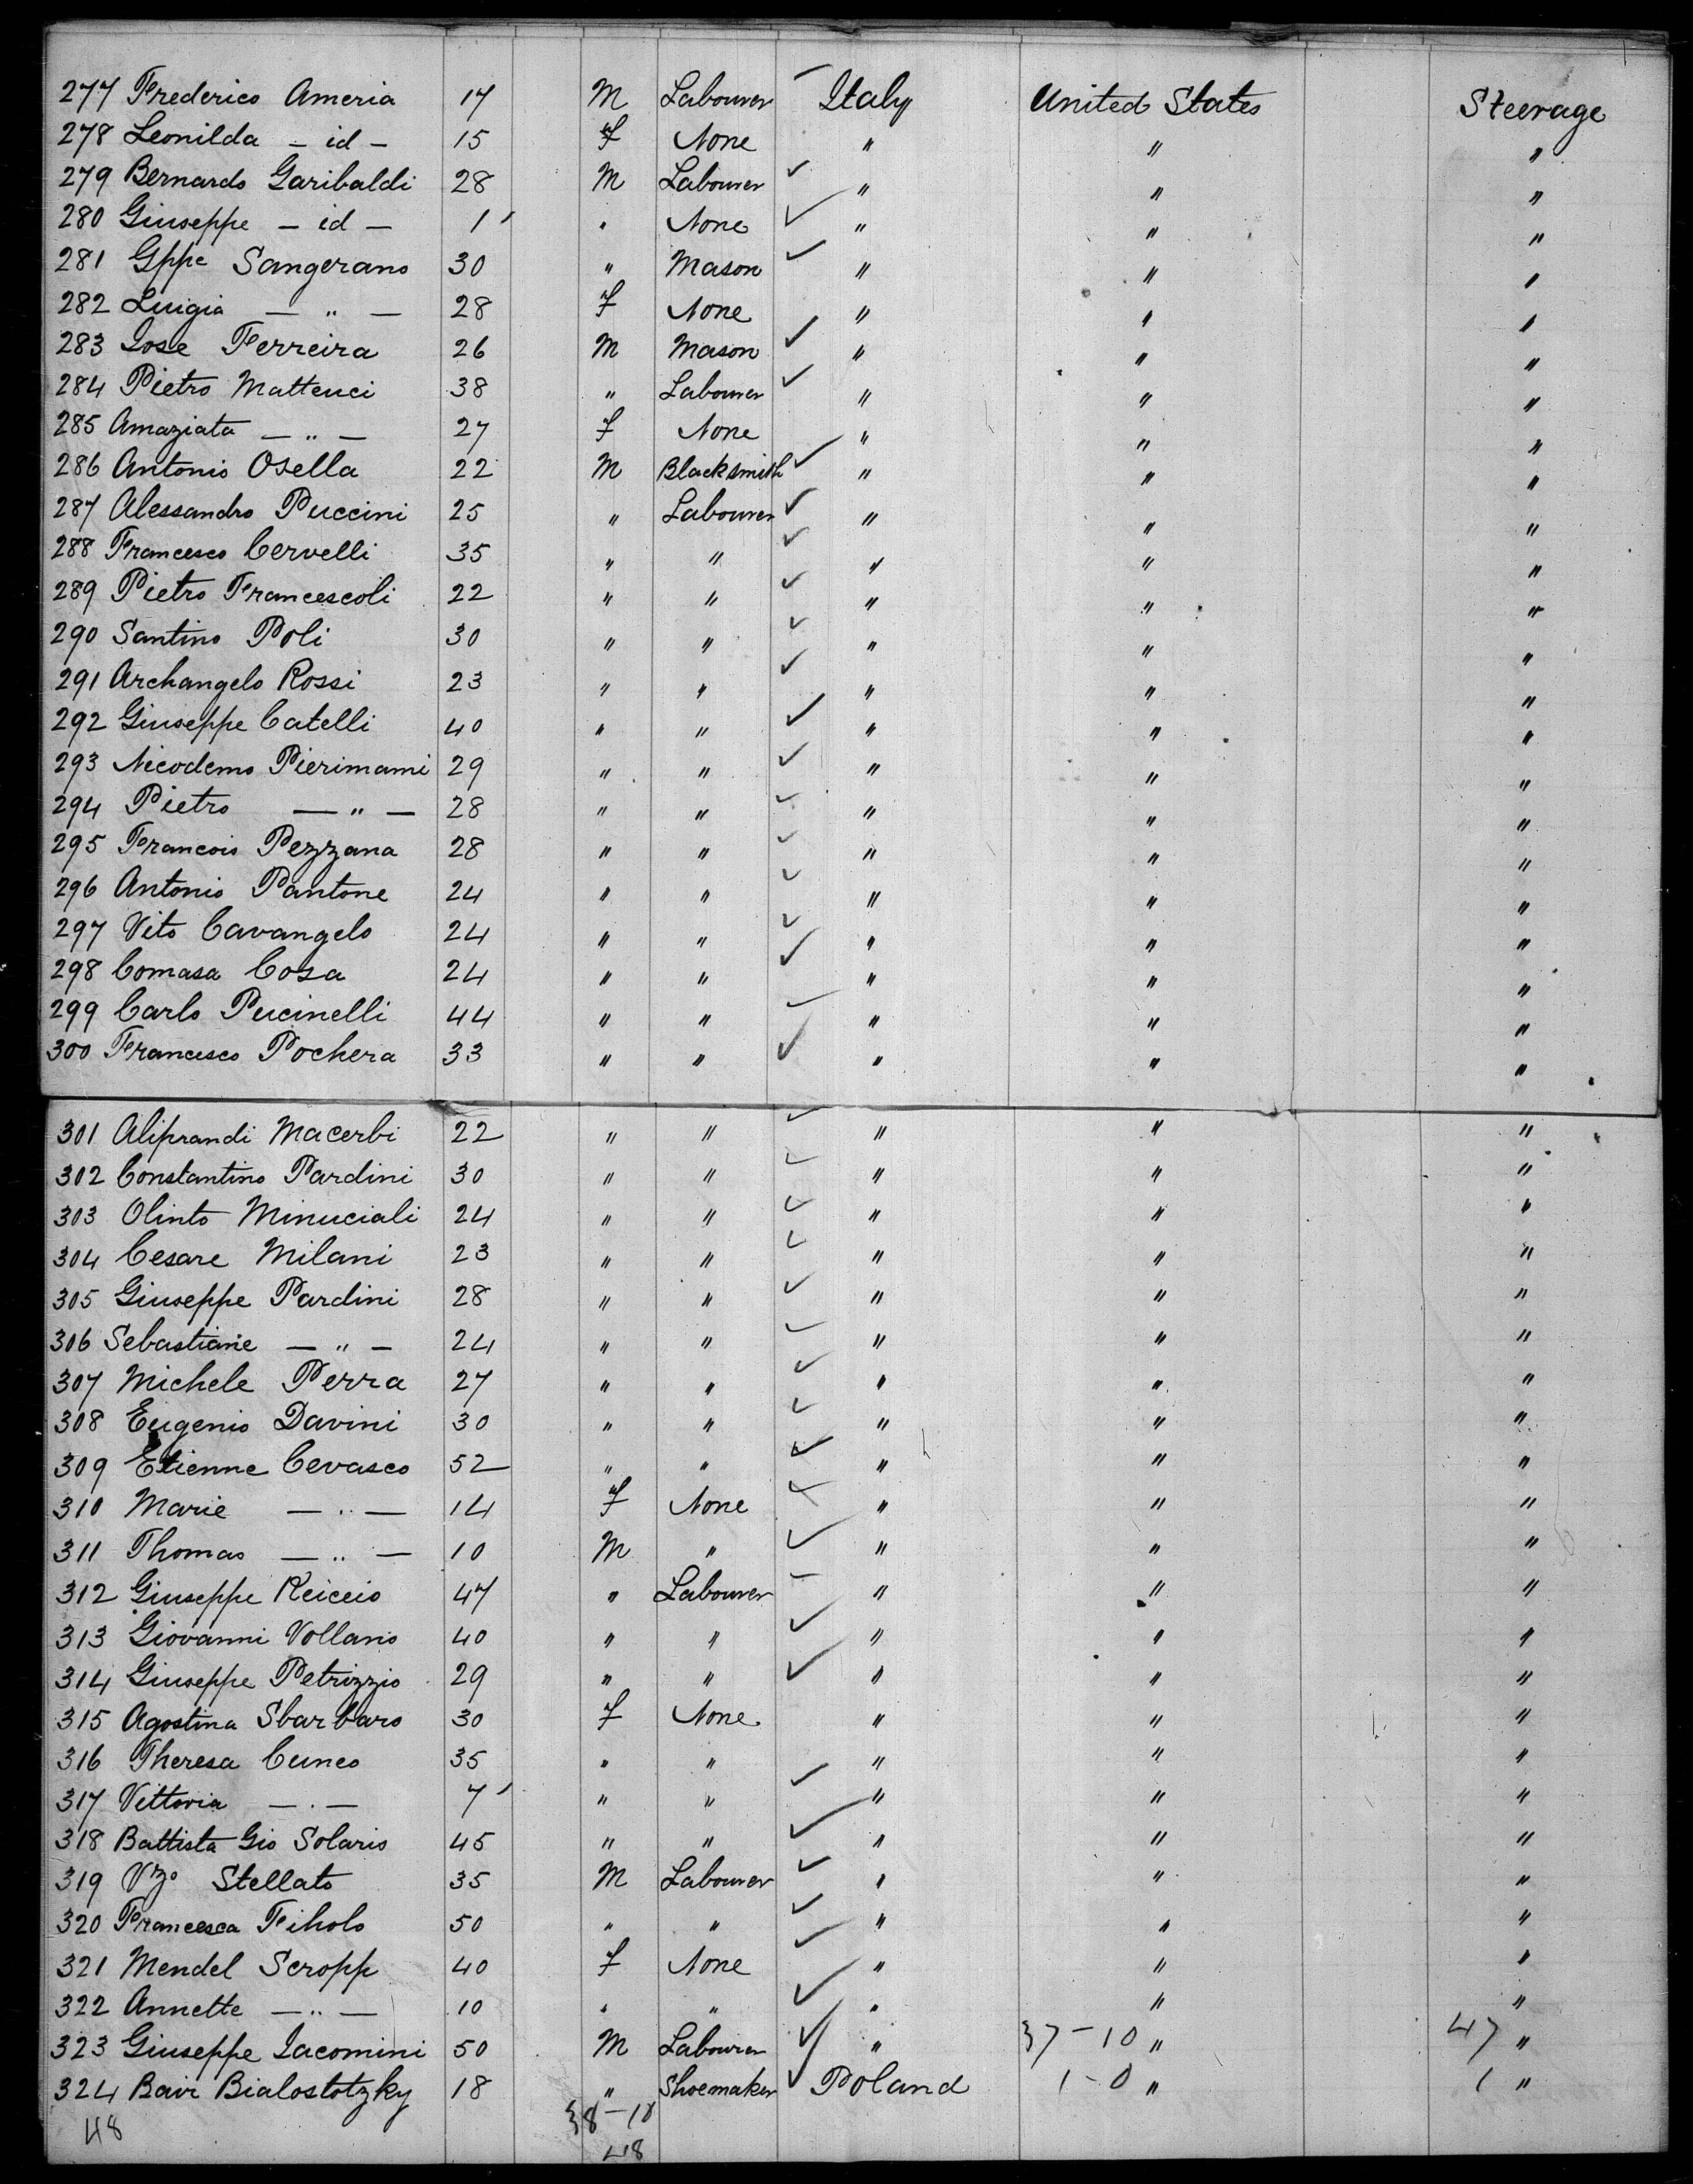 277 Frederico Ameria 17 M Labourer Italy United States Steerage
278 Leonilda — id — 15 f None " " "
279 Bernardo Garibaldi 28 M Labourer " " "
280 Giuseppe — id — 1 " None " " "
281 Gppe Sangerano 30 " Mason " " "
282 Luigia — " — 28 f None " " "
283 Jose Ferreira 26 M Mason " " "
284 Pietro Matteuci 38 " Labourer " " "
285 Amaziata — " — 27 f None " " "
286 Antonio Osella 22 M Blacksmith " " "
287 Alessandro Puccini 25 " Labourer " " "
288 Francesco Cervelli 35 " " " " "
289 Pietro Francescoli 22 " " " " "
290 Santino Poli 30 " " " " "
291 Archangelo Rossi 23 " " " " "
292 Giuseppe Catelli 40 " " " " "
293 Nicodemo Pierimami 29 " " " " "
294 Pietro — " — 28 " " " " "
295 Francois Pezzana 28 " " " " "
296 Antonio Pantone 24 " " " " "
297 Vito Cavangelo 24 " " " " "
298 Comasa Cosa 24 " " " " "
299 Carlo Pucinelli 44 " " " " "
300 Francesco Pochera 33 " " " " "
301 Aliprandi Macerbi 22 " " " " "
302 Constantino Pardini 30 " " " " "
303 Olinto Minuciali 24 " " " " "
304 Cesare Milani 23 " " " " "
305 Giuseppe Pardini 28 " " " " "
306 Sebastiane — " — 24 " " " " "
307 Michele Perra 27 " " " " "
308 Eugenio Davini 30 " " " " "
309 Etienne Cevasco 52 " " " " "
310 Marie — " — 14 f None " " "
311 Thomas — " — 10 M " " " "
312 Giuseppe 47 " Labourer " " "
313 Giovanni Vollano 40 " " " " "
314 Giuseppe Petrizzio 29 " " " " "
315 Agostina Sbarbaro 30 f None " " "
316 Theresa Cuneo 35 " " " " "
317 Vittoria — " — 7 " " " " "
318 Battista Gio Solaris 45 " " " " "
319 Vzo Stellato 35 M Labourer " " "
320 Francesca Fiholo 50 " " " " "
321 Mendel Scropp 40 f None " " "
322 Annette — " — 10 " " " " "
323 Giuseppe Iacomini 50 M Labourer " 37-10 " 47 "
324 Bair Bialostotzky 18 " Shoemaker Poland 1-0 " 1 "
48 38-10
48